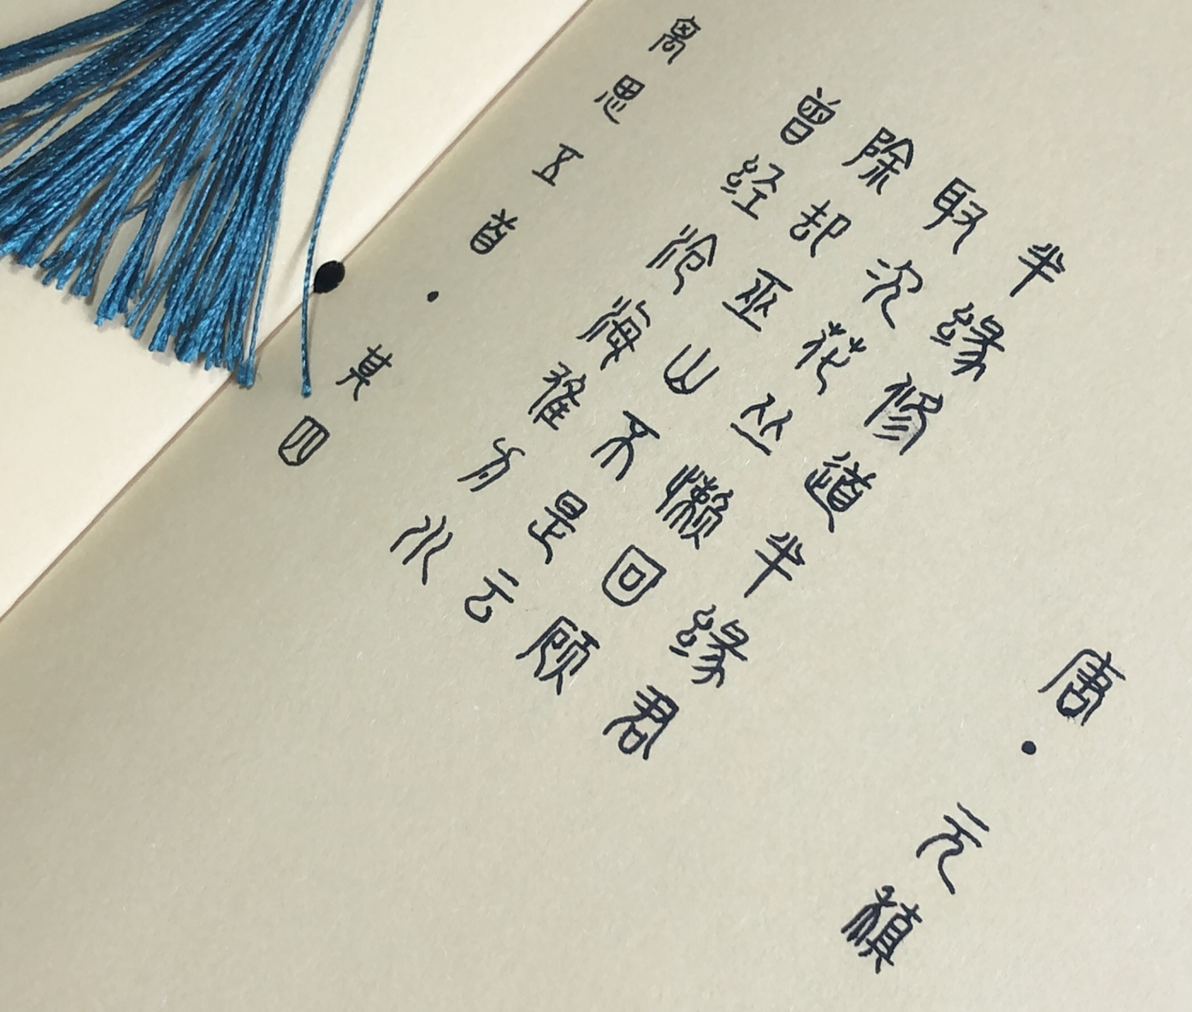 离思五首·其四
曾经沧海难为水
除却巫山不是云
取次花丛懒回顾
半缘修道半缘君
唐·元稹